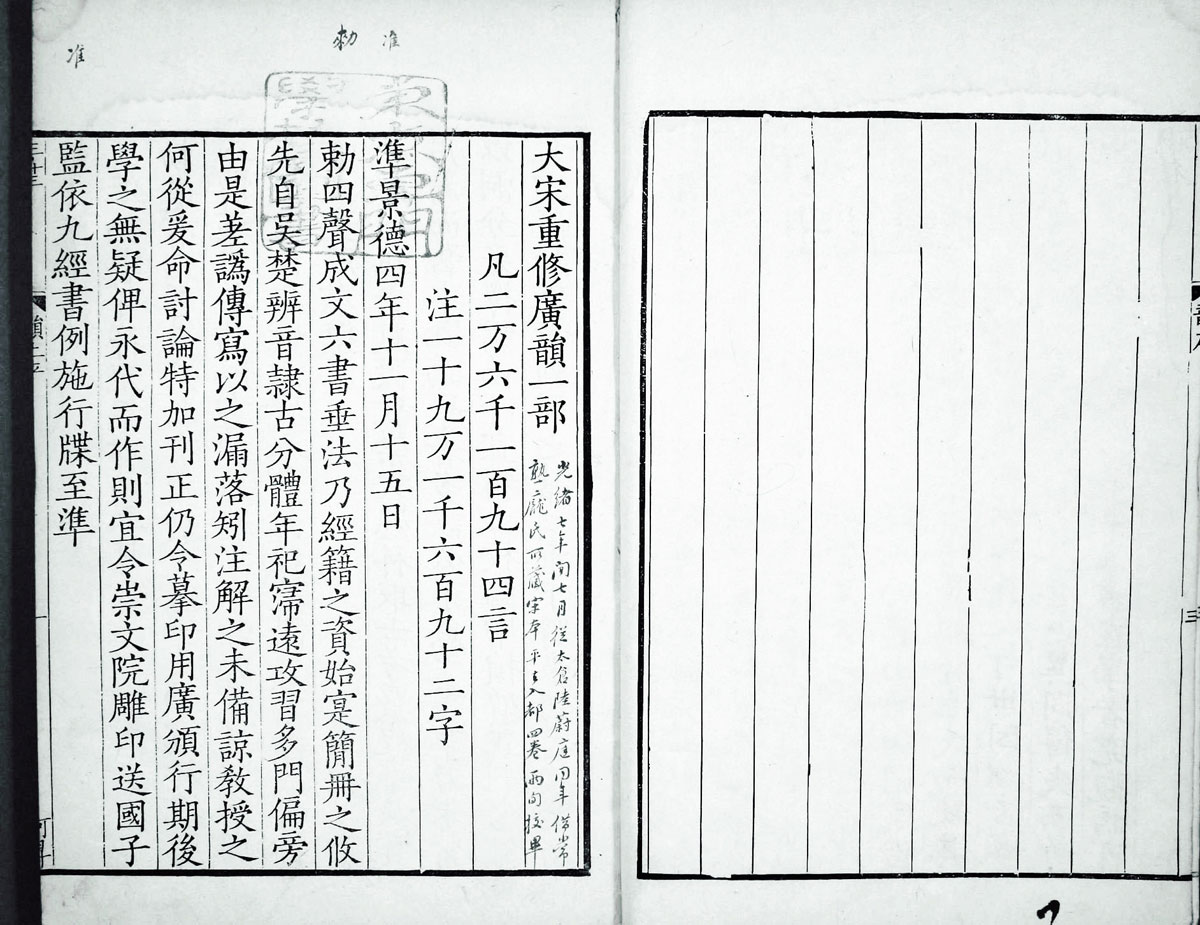 大宋重修廣韻一部
光緒七年閏七月從太倉陸蔚庭同年借常
熟龐氏所藏宋本平上入都四卷兩旬挍畢
凡二万六千一百九十四言
注一十九万一千六百九十二字
準景德四年十一月十五日
勑四聲成文六書垂法乃經籍之資始寔簡冊之攸
先自吴楚辨音隷古分體年祀寖遠攻習多門偏旁
由是差譌傳寫以之漏落矧注解之未備諒教授之
何從爰命討論特加刊正仍令摹印用廣頒行期後
學之無疑俾永代而作則宜令崇文院雕印送國子
監依九經書例施行牒至準
准
勑
准